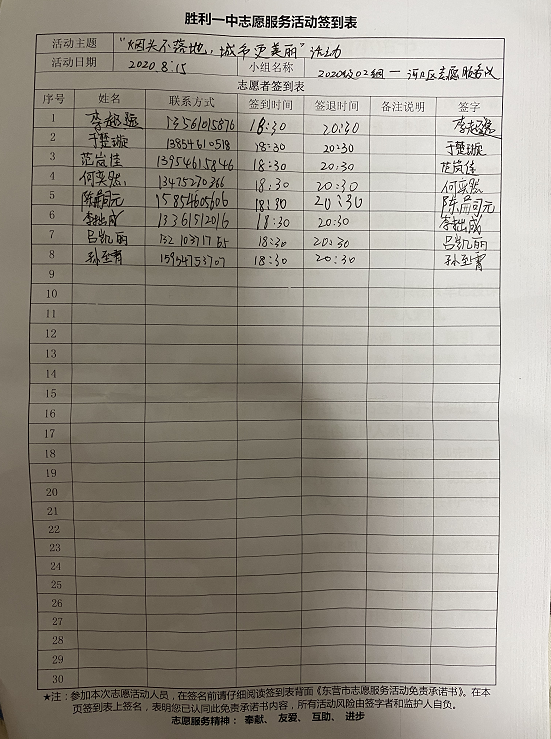 胜利一中志愿服务活动签到表
活动主题 “烟头不落地，城市更美丽”活动
活动日期 2020.8.15 小组名称 2020级02组一河口区志愿服务队
志愿者签到表
序号 姓名 联系方式 签到时间 签退时间 备注说明 签字
1 李超强 13561015876 18:30 20:30 李超强
2 于楚璇 13854610518 18:30 20:30 于楚璇
3 范岚佳 13954615846 18:30 20:30 范岚佳
4 何奕然 13475230266 18:30 20:30 何奕然
5 15854605606 18:30 20:30
6 李拙成 13361512016 18:30 20:30 李拙成
7 吕凯丽 13210371755 18:30 20:30 吕凯丽
8 孙至霄 15954753707 18:30 20:30 孙至霄
9
10
11
12
13
14
15
16
17
18
19
20
21
22
23
24
25
26
27
28
29
30
★注：参加本次志愿活动人员，在签名前请仔细阅读签到表背面《东营市志愿服务活动免责承诺书》。在本
页签到表上签名，表明您已认同此免责承诺书内容，所有活动风险由签字者和监护人自负。
志愿服务精神：奉献、友爱、互助、进步